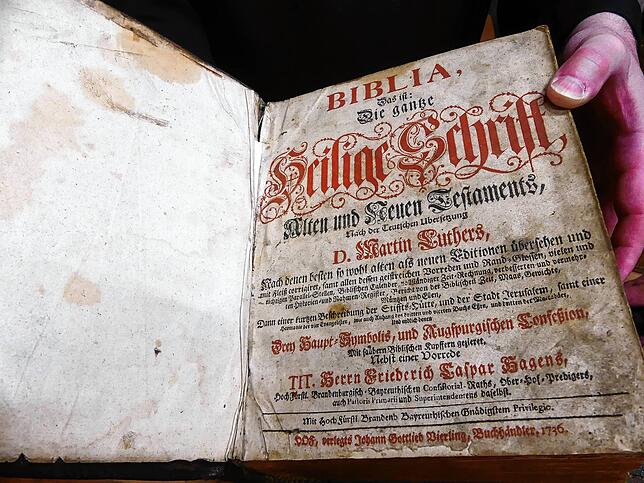 BIBLIA,
Das ist:
Die gantze
Heilige Schrift,
Alten und Neuen Testaments,
Nach der Teutschen Ubersetzung
D. Martin Luthers,
Nach denen besten so wohl alten als neuen Editionen übersehen und
mit Fleiß corrigiret, samt allen dessen geistreichen Vorreden und Rand-Glossen, vielen und
richtigen Parallel-Stellen, Biblischen Calender, vollständiger Zeit-Rechnung, verbesserten und vermehr-
ten Historien und Nahmen-Register, Bericht von der Biblischen Zeit, Maas, Gewichte,
Müntzen und Elen,
Dann einer kurtzen Beschreibung der Stiffts-Hütte, und der Stadt Jerusalem, samt einer
Harmonie der vier Evangelisten, wie auch Anhang des dritten und vierten Buchs Esra, und dritten der Maccabäer,
Und endlich denen
Drey Haupt-Symbolis, und Augspurgischen Confeßion,
Mit saubern Biblischen Kupffern gezieret.
Nebst einer Vorrede
TIT. Herrn Friederich Caspar Hagens,
Hoch Fürstl. Brandenburgisch-Bayreuthischen Consistorial-Raths, Ober-Hof-Predigers,
auch Pastoris Primarii und Superintendentens daselbst.
Mit Hoch Fürstl. Brandenb. Bayreuthischen Gnädigstem Privilegio.
HOF, verlegts Johann Gottlieb Vierling, Buchhändler, 1736.